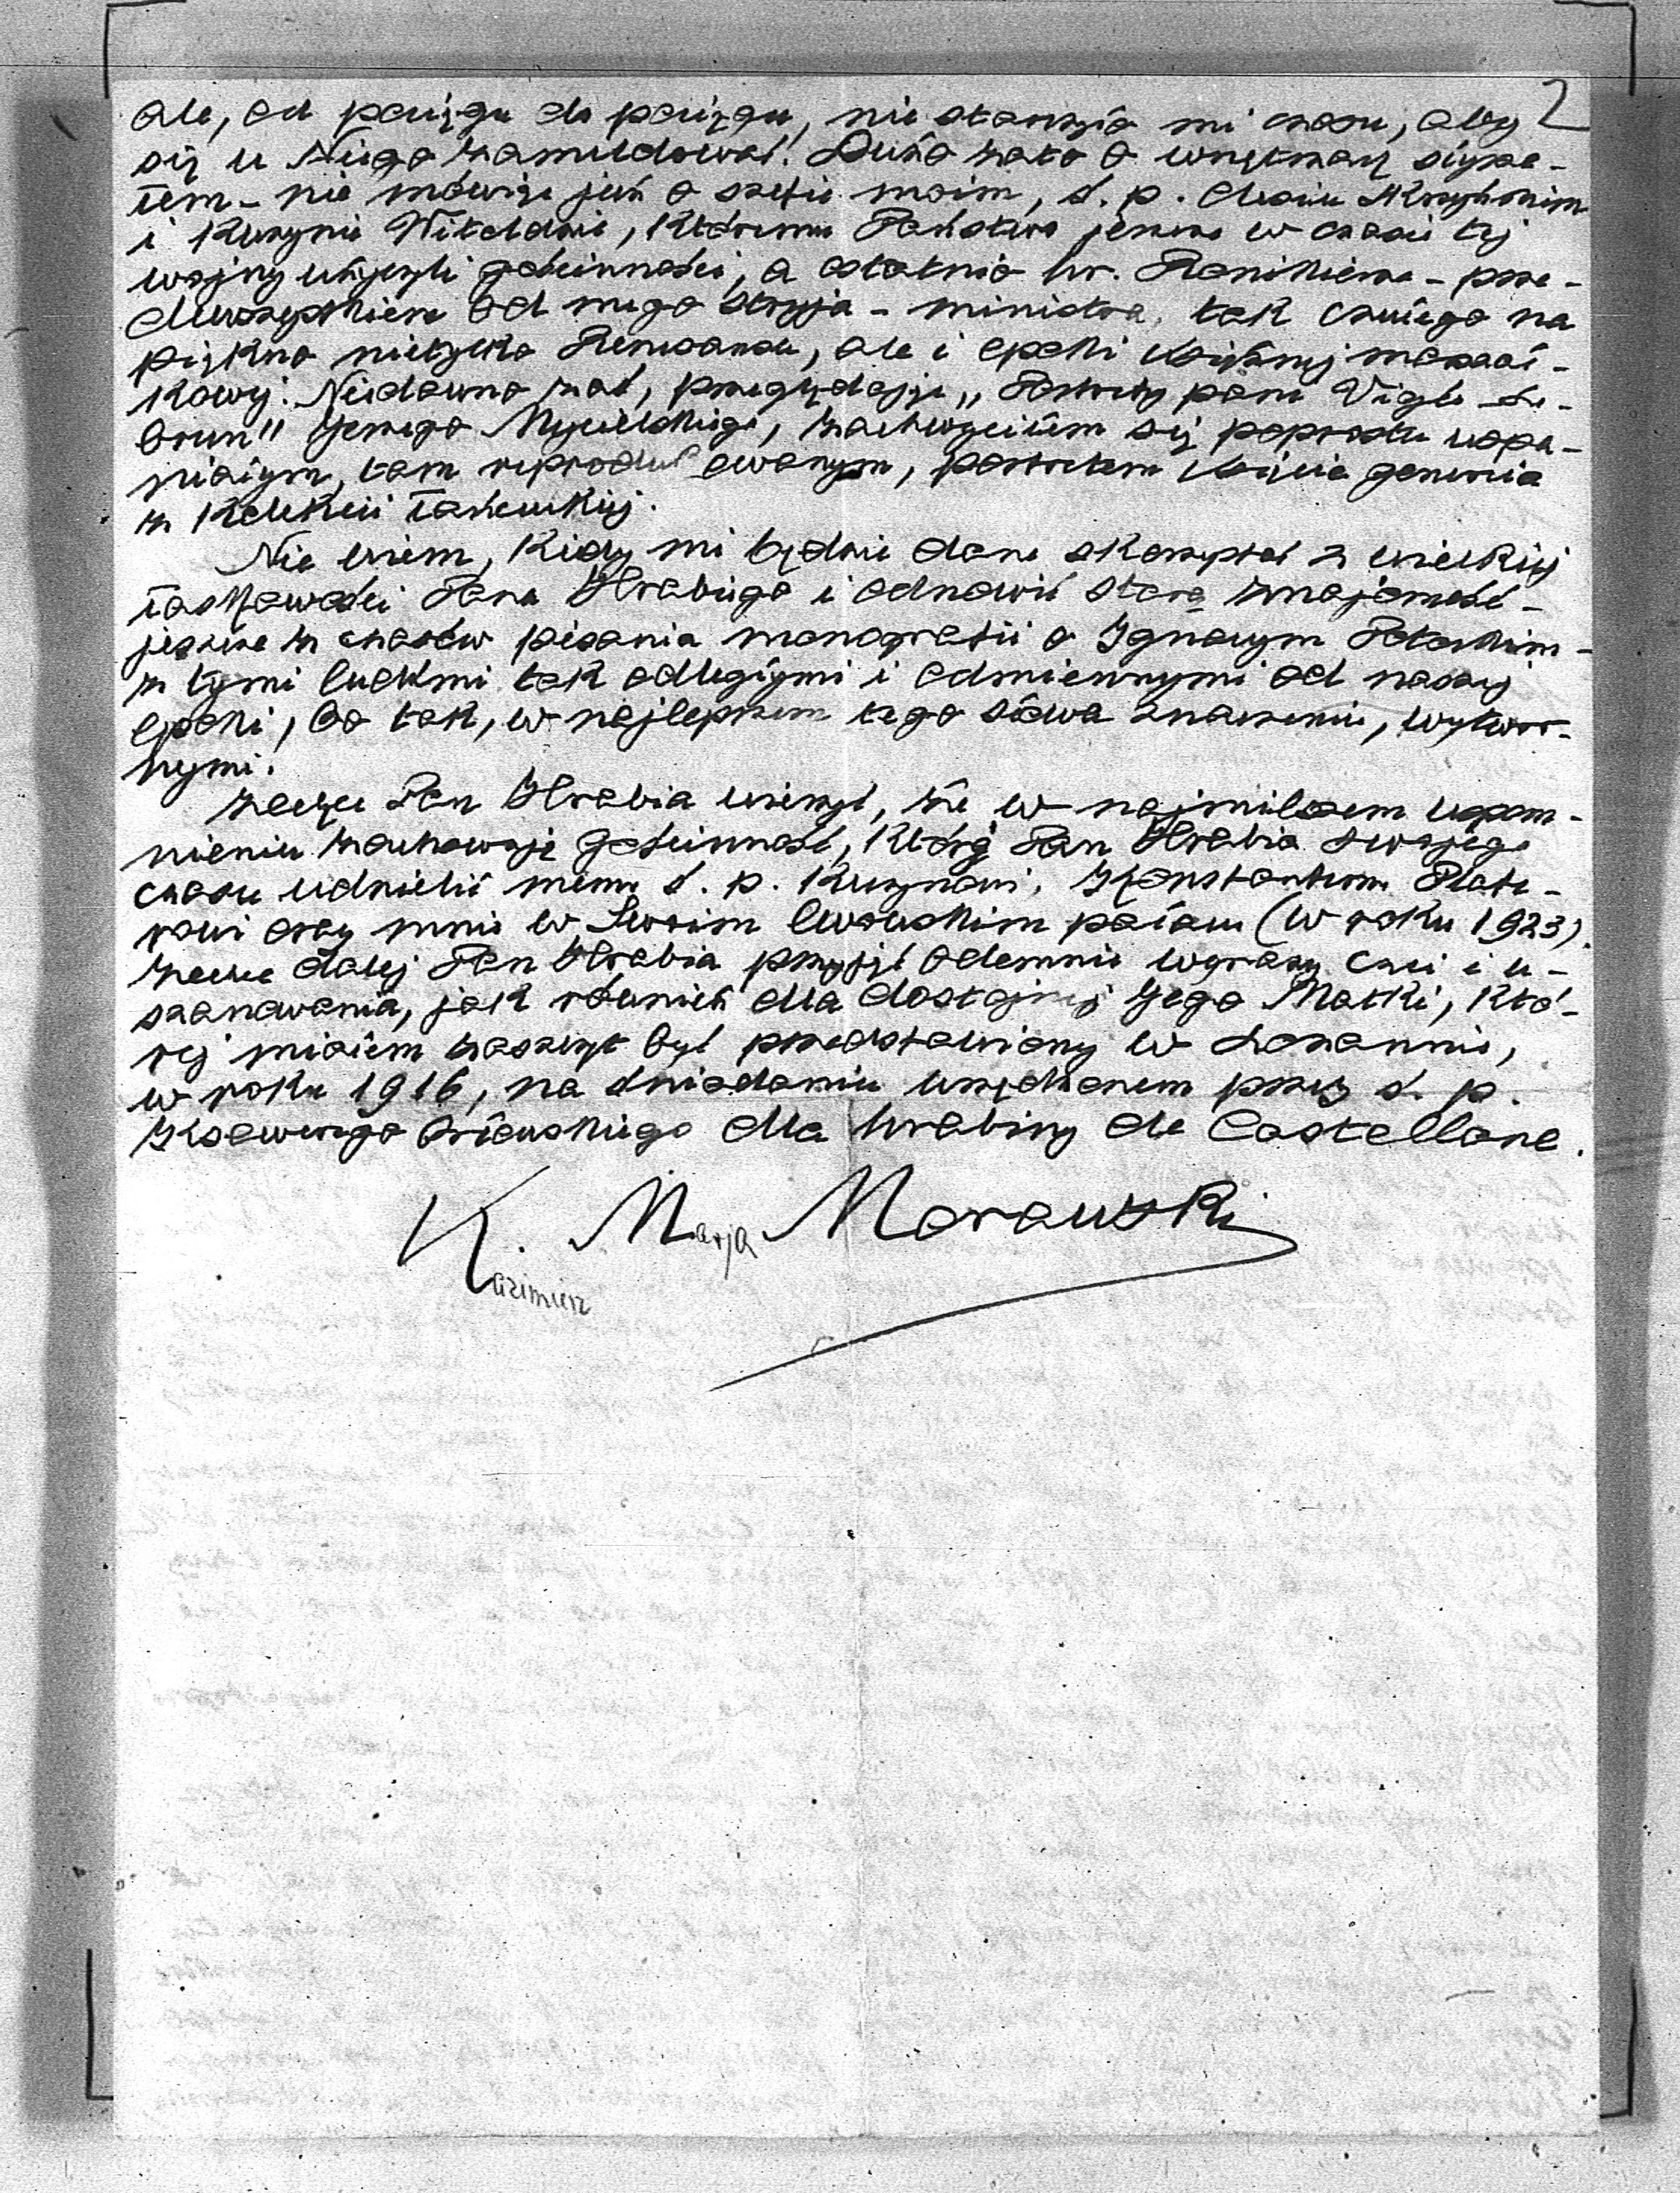 2
ale, od pociągu do pociągu, nie starczyło mi czasu, aby
się u Niego zameldować. Dużo zato o wnętrzach słysza-
łem – nie mówiąc już o szefie moim, ś. p. Alesiu Skrzyńskim
i kuzynie Witoldzie, któremu Państwo jeszcze w czasie tej
wojny użyczyli gościnności, a ostatnio hr. Ronikiera – prze-
dewszystkiem od mego stryja – ministra, tak czułego na
piękno nietylko Renesansu, ale i epoki książąt marszał-
kowej. Niedawno zaś, przeglądając „Portrety pani Vigée-Le-
brun" Jerzego Mycielskiego, zachwyciłem się poprostu wspa-
niałym, tam reprodukowanym, portretem księcia generała
z kolekcji łańcuckiej.
Nie wiem, kiedy mi będzie dane skorzystać z wielkiej
łaskawości Pana Hrabiego i odnowić starą znajomość –
jeszcze z czasów pisania monografii o Ignacym Potockim –
z tymi ludźmi tak odległymi i odmiennymi od naszej
epoki, bo tak, w najlepszem tego słowa znaczeniu, wytwor-
nymi.
Zechce Pan Hrabia wierzyć, że w najmilszem wspom-
nieniu zachowuję gościnność, którą Pan Hrabia swojego
czasu udzielił memu ś. p. kuzynowi, Konstantemu Plate-
rowi oraz mnie w Swoim lwowskim pałacu (w roku 1923).
Zechce dalej Pan Hrabia przyjąć odemnie wyrazy czci i u-
szanowania, jak również dla dostojnej Jego Matki, któ-
rej miałem zaszczyt być przedstawiony w Lozannie,
w roku 1916, na śniadaniu urządzonem przez ś. p.
Ksawerego Orłowskiego dla hrabiny de Castellane.
K. Marja Morawski
Kazimierz